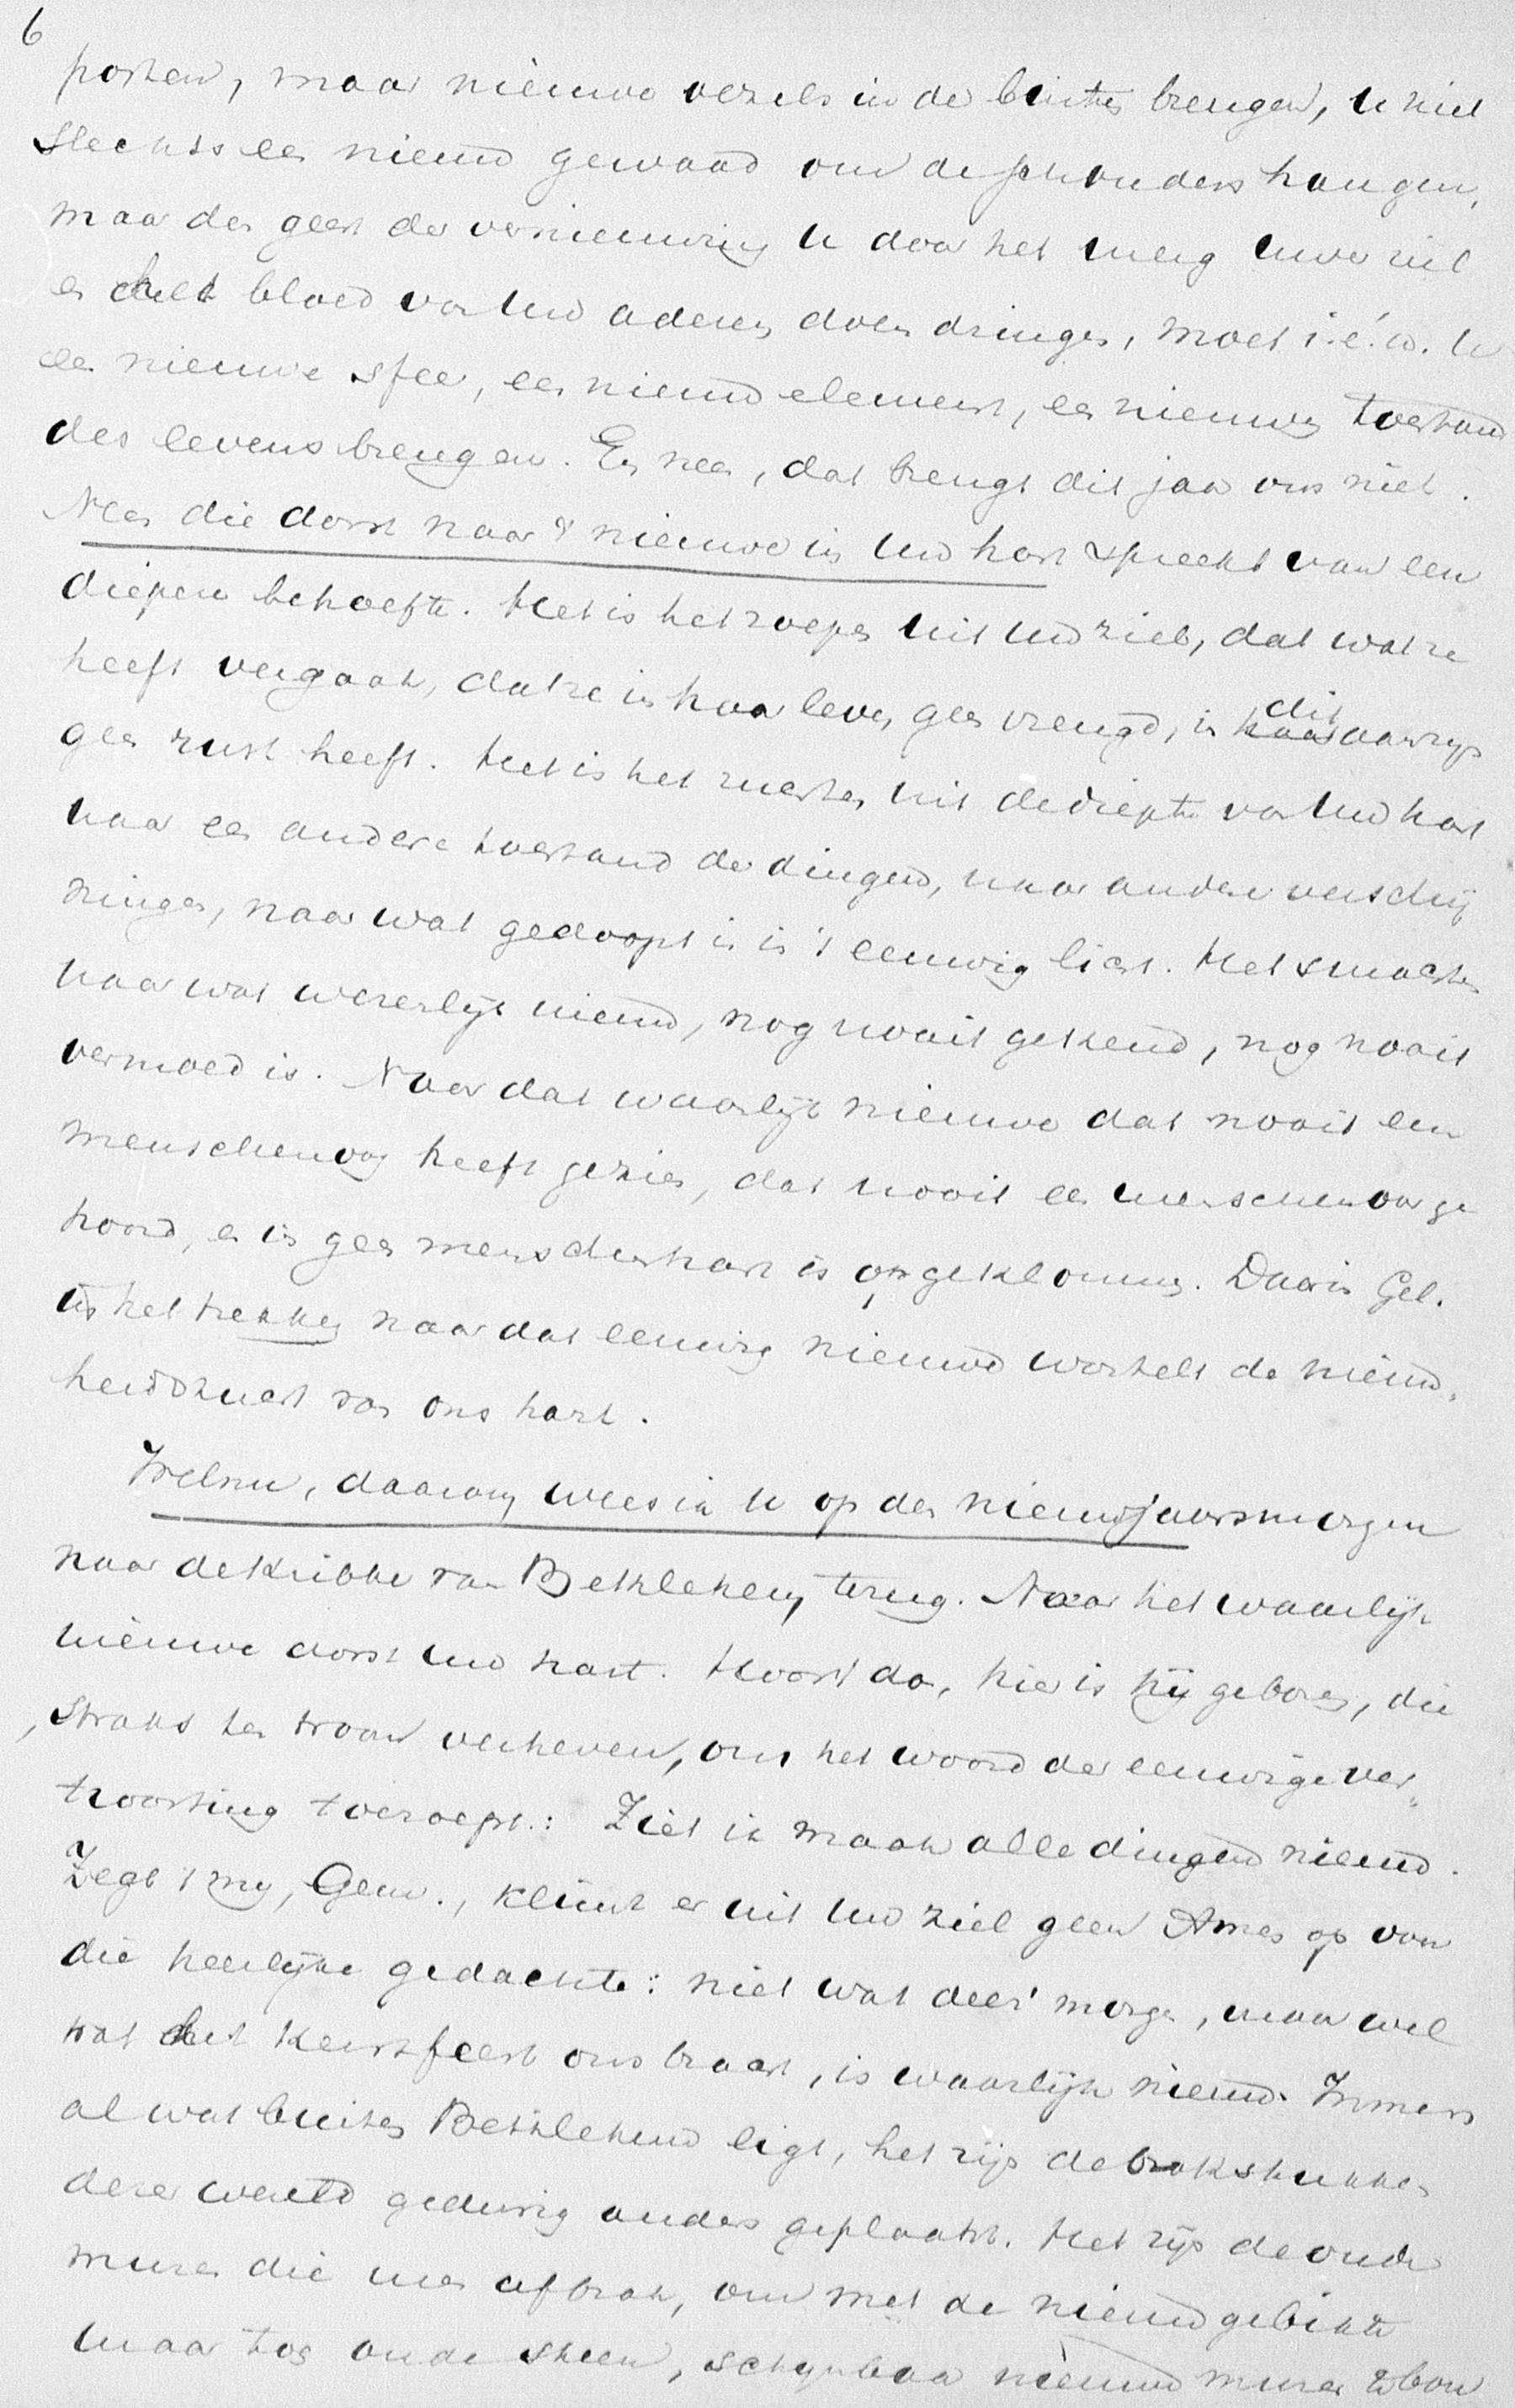 6
posten, maar nieuwe vezels in de binten brengen, u niet
slechts een nieuw gewaad om de schouders hangen,
maar den geest der vernieuwing u door het merg uwer ziel
en het bloed van uw aderen doen dringen, moet i.é.w. u
een nieuwe sfeer, een nieuw element, een nieuwen toestand
des levens brengen. En neen, dat brengt dit jaar ons niet.
Neen die dorst naar 't nieuwe in uw hart spreekt van een
diepere behoefte. Het is het roepen uit uw ziel, dat wat ze
heeft vergaat, dat ze in haar leven geen vreugd, in dit aanzijn
geen rust heeft. Het is het smachten uit de diepte van uw hart
naar een andere toestand der dingen, naar andere verschij
ningen, naar wat gedoopt is in 't eeuwig licht. Het smachten
naar wat wezenlijk nieuw, nog nooit gekend, nog nooit
vermoed is. Naar dat waarlijk nieuwe dat nooit een
menschenoog heeft gezien, dat nooit een menschenoor ge
hoord, en in geen menschenhart is opgeklommen. Daarin Gel.
in het trekken naar dat eeuwig nieuwe wortelt de nieuw-
heidszucht van ons hart.
Welnu, daarom wees ik u op den nieuwjaarsmorgen
naar de kribbe van Bethlehem terug. Naar het waarlijk
nieuwe dorst uw hart. Hoort dan, hier is hij geboren, die
, straks ten troon verheven, ons het woord der eeuwige ver-
troosting toeroept: Ziet ik maak alle dingen nieuw.
Zegt 't mij, Gem., klimt er uit uw ziel geen Amen op van
die heerlijke gedachte: niet wat deez' morgen, maar wel
wat het Kerstfeest ons bracht, is waarlijk nieuw. Immers
al wat buiten Bethlehem ligt, het zijn de brokstukken
dezer wereld gedurig anders geplaatst. Het zijn de oude
muren die men afbrak, om met de nieuw gebikte
maar toch oude steen, schijnbaar nieuwe muren te bouw